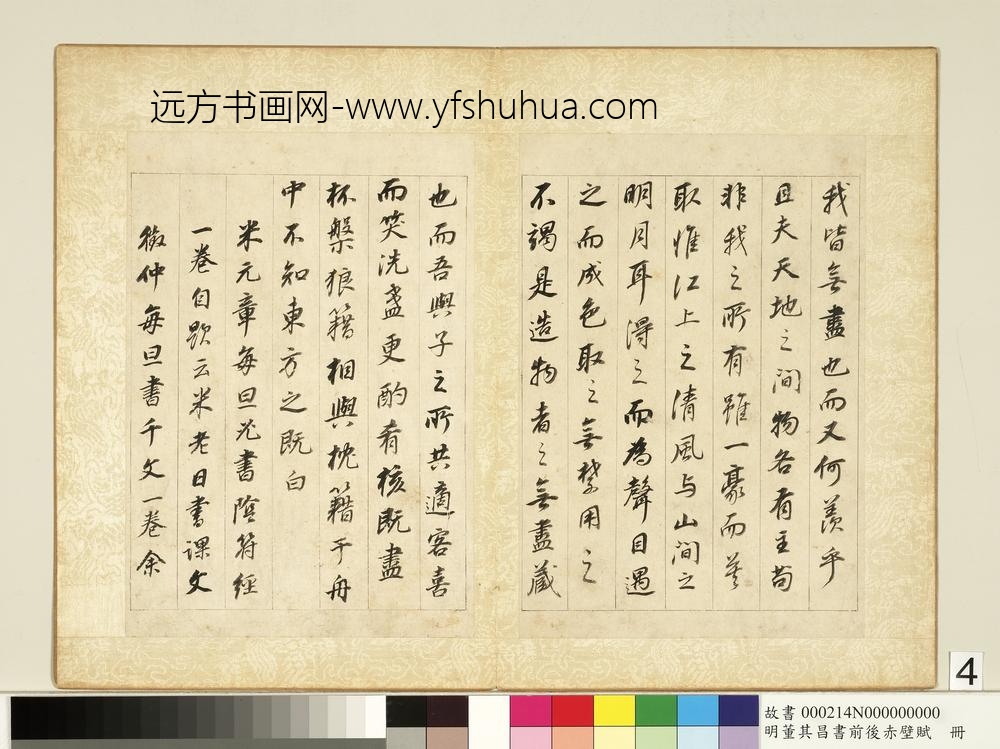 远方书画网-www.yfshuhua.com
我皆無盡也而又何羨乎
且夫天地之間物各有主苟
非我之所有雖一豪而莫
取惟江上之清風与山間之
明月耳得之而為聲目遇
之而成色取之無禁用之
不竭是造物者之無盡藏
也而吾與子之所共適客喜
而笑洗盞更酌肴核既盡
杯槃狼籍相與枕籍乎舟
中不知東方之既白
米元章每旦必書陰符經
一卷自題云米老日書課文
徵仲每旦書千文一卷余
4
故書 000214N000000000
明董其昌書前後赤壁賦 冊